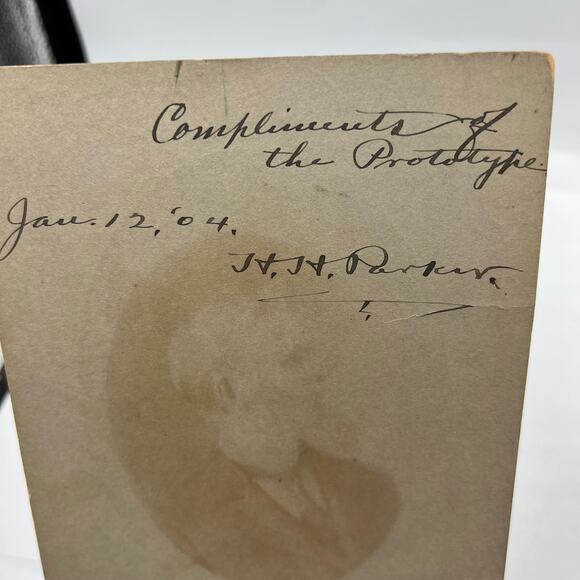 Compliments of
the Prototype.
Jan. 12, '04.
H. H. Parker.